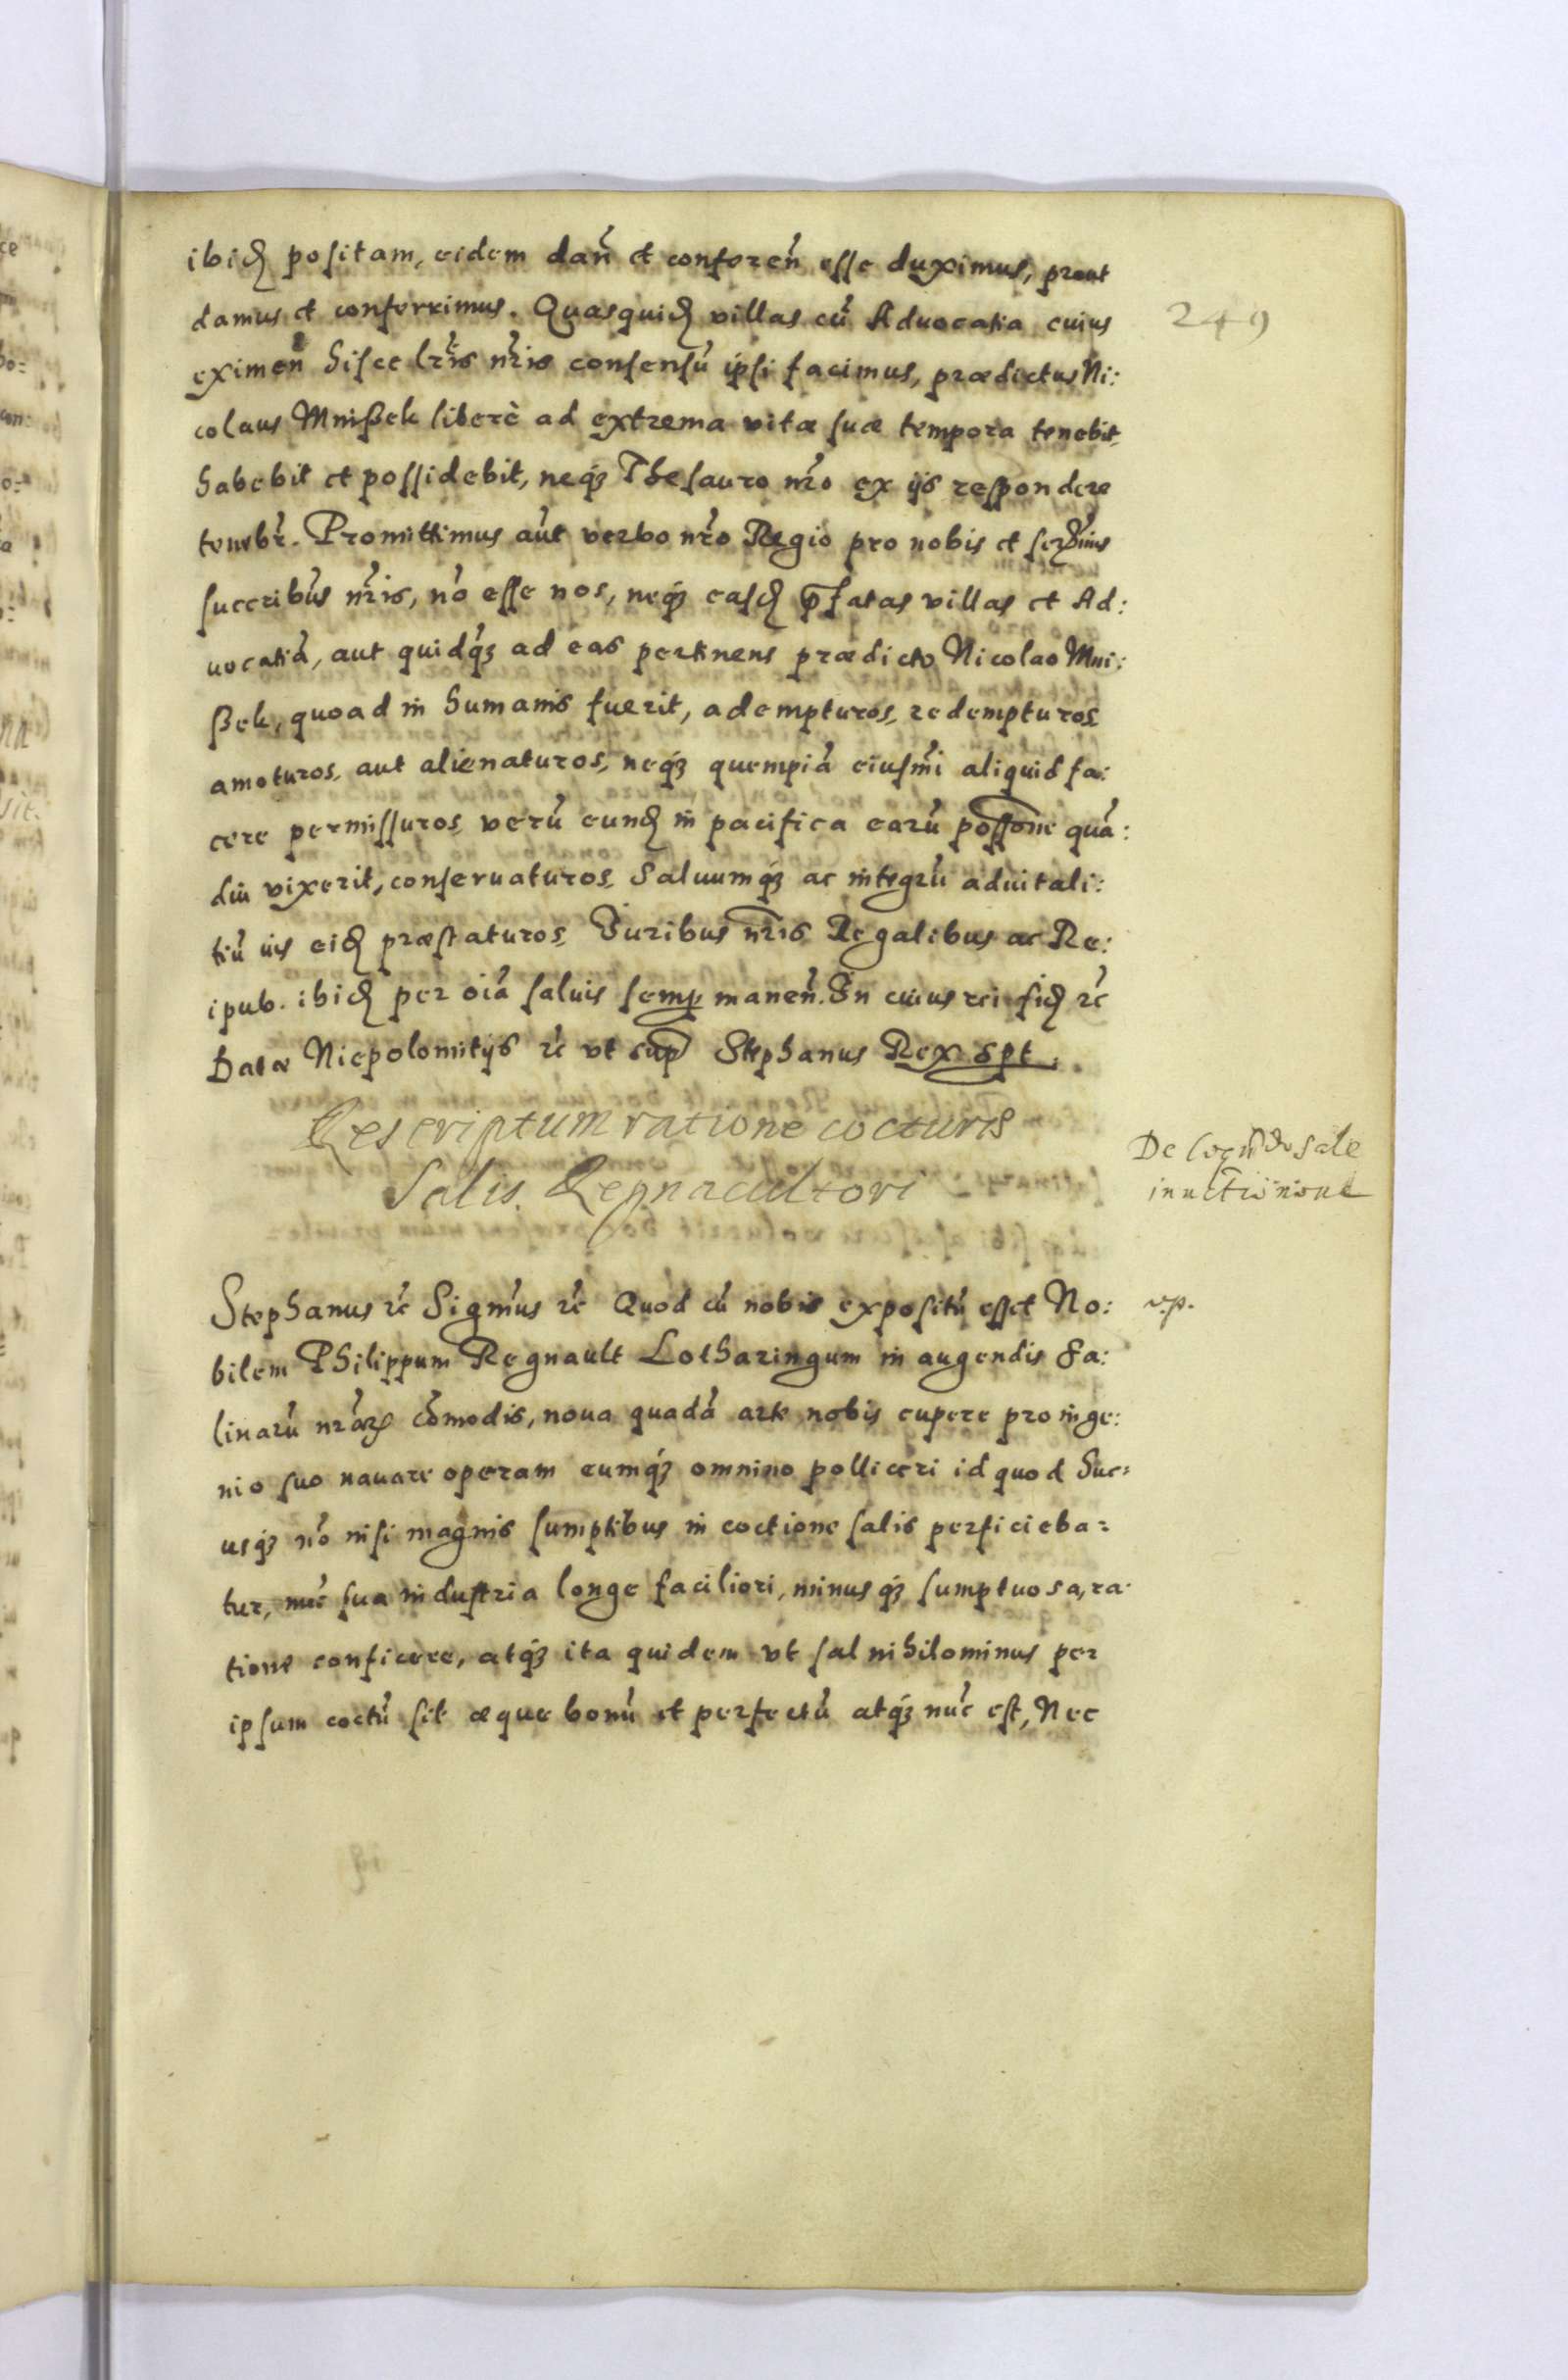 ibid̃ positam, eidem dan̄ et conferen̄ esse duximus, prout
damus et conferrimus. Quasquid̃ villas cũ Advocatia cuius
eximen̄ hisce lr̃is nr̃is consensũ ipsi facimus, prædictus Ni:
colaus Mnißek liberè ad extrema vitæ suæ tempora tenebit,
habebit et possidebit, neq́ Thesauro nr̃o ex ijs respondere
tenebr̃. Promittimus aũt verbo nr̃o Regio pro nobis et
succribũs nr̃is, nõ esse nos, neq́ easd̃ p̃fatas villas et Ad:
uocatiã, aut quidq́ ad eas pertinens prædicto Nicolao Mni:
ßek, quoad in humanis fuerit, adempturos, redempturos
amoturos, aut alienaturos, neq́ quempiã eiusmĩ aliquid fa:
cere permissuros, verũ eund̃ in pacifica earũ possõne quã:
diu vixerit, conseruaturos, Saluumq́ ac integrũ aduitali:
tiũ ius eid̃ præstaturos, Iuribus nr̃is Regalibus ac Re:
ipub. ibid̃ per oĩa saluis semp̱ manen̄. In cuius rei fid̃ ꝛc̃
Datæ Niepolomitijs ꝛc̃ vt sup̃ Stephanus Rex spt.
249
Rescriptum ratione cocturis
Salis. Regnacultori
De coqũdo sale
Stephanus ꝛc̃ Sigm̃us ꝛc̃ Quod cũ nobis expositũ esset No:
v.p.
bilem Philippum Regnault Lotharingum in augendis Sa:
linarũ nr̃aꝝ cõmodis, noua quadã arte nobis cupere pro inge:
nio suo nauare operam eumq́ omnino polliceri id quod huc:
usq́ nõ nisi magnis sumptibus in coctione salis perficieba:
tur, nũc sua industria longe faciliori, minusq́ sumptuosa, ra:
tione conficere, atq́ ita quidem vt sal nihilominus per
ipsum coctũ sit æque bonũ et perfectũ atq́ nũc est, Nec